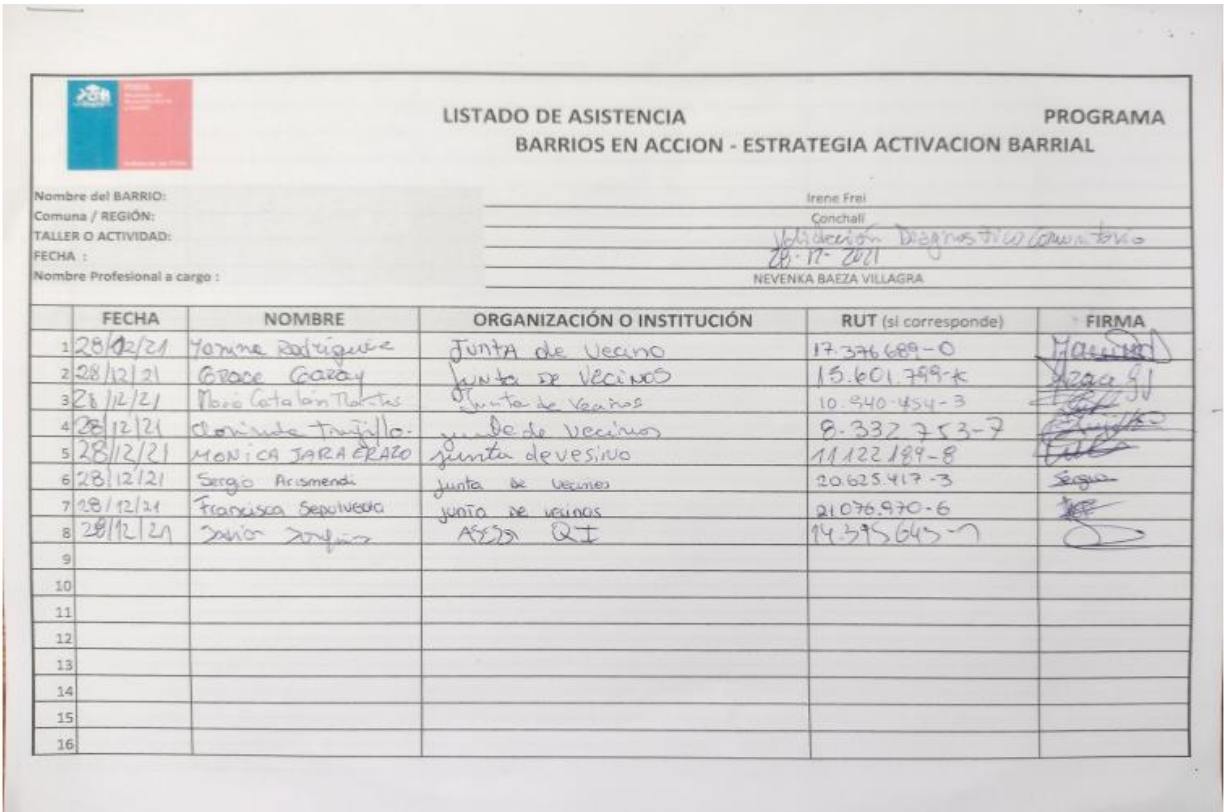 LISTADO DE ASISTENCIA PROGRAMA
BARRIOS EN ACCION - ESTRATEGIA ACTIVACION BARRIAL
Nombre del BARRIO: Irene Frei
Comuna / REGIÓN: Conchalí
TALLER O ACTIVIDAD: Validación Diagnostico Comunitario
FECHA : 28-12-2021
Nombre Profesional a cargo : NEVENKA BAEZA VILLAGRA
FECHA NOMBRE ORGANIZACIÓN O INSTITUCIÓN RUT (si corresponde) FIRMA
1 28/12/21 Junta de Vecino 17.376.689-0
2 28/12/21 Grace Garay Junta de Vecinos 15.601.799-k Grace
3 28/12/21 Catalán Junta de Vecinos 10.940.454-3
4 28/12/21 Trujillo. junta de vecinos 8.332.753-7
5 28/12/21 MONICA JARA ERAZO junta devesino 11122189-8
6 28/12/21 Sergio Arismendi junta de vecinos 20.625.417-3 Sergio
7 28/12/21 Francisca Sepulveda junta de vecinos 21076.970-6
8 28/12/21
9
10
11
12
13
14
15
16